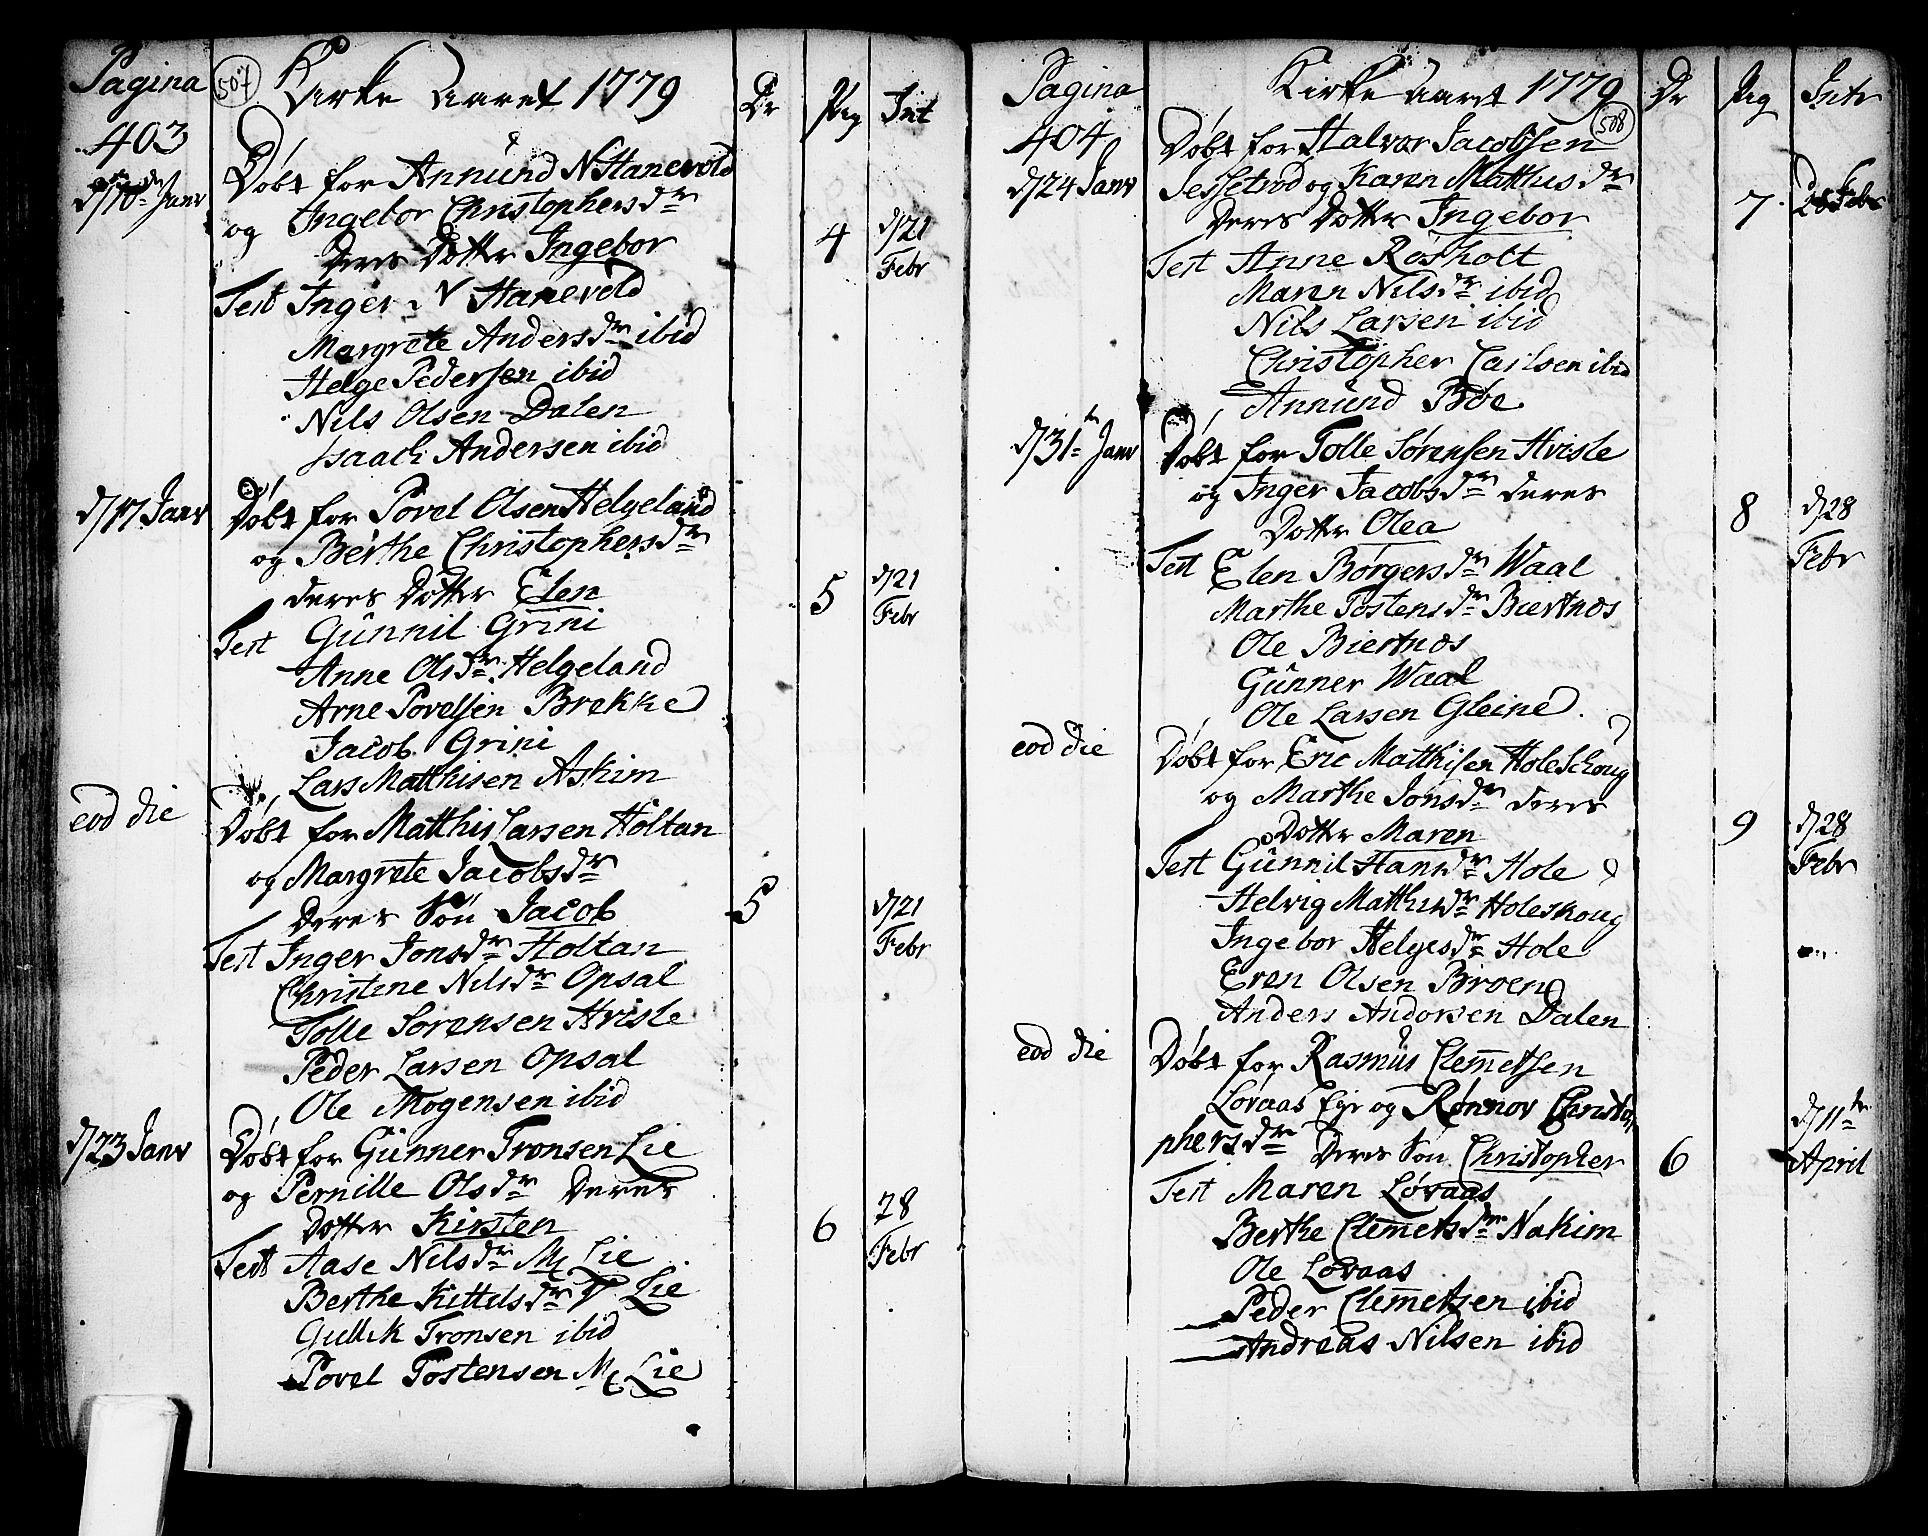 Pagina
403
507
Kirke Aaret 1779
Dr
Pig
Int
d/10de Janv
Døbt for Annund N Stanevold
og Ingebor Christophersdr
deres Dotter Ingebor
4
d/21
Febr
Test Inger N Stanevold
Margrete Andersdr ibid
Helge Pedersen ibid
Nils Olsen Dalen
Isaach Andersen ibid
d/17 Janv
Døbt for Povel Olsen Helgeland
og Berthe Christophersdr
deres Dotter Elen
5
d/21
Febr
Test Gunnil Grini
Anne Olsdr Helgeland
Arne Povelsen Brekke
Jacob Grini
Lars Matthisen Askim
eod die
Døbt for Matthis Larsen Holtan
og Margrete Jacobsdr
Deres Søn Jacob
5
d/21
Febr
Test Inger Jonsdr Holtan
Christine Nilsdr Opsal
Tolle Sorensen Hvisle
Peder Larsen Opsal
Ole Mogensen ibid
d/23 Janv
Døbt for Gunner Tronsen Lie
og Pernille Olsdr Deres
Dotter Kirsten
6
28
Febr
Test Aase Nilsdr M Lie
Berthe Kittelsdr Lie
Gullik Tronsen ibid
Povel Tostensen M Lie
Pagina
404
Kirke Aaret 1779
508
Dr
Pig
Intr
d/24 Janv
Døbt for Halvor Jacobsen
Tessetrod og Karen Matthisdr
Deres Dotter Ingebor
7
28 Febr
Test Anne Rosholt
Maren Nilsdr ibid
Nils Larsen ibid
Christopher Carlsen ibid
Annund Bøe
d/31te Janv
Døbt for Tolle Sørensen Hvisle
og Inger Jacobsdr deres
Dotter Olea
8
d/28
Febr
Test Elen Børgersdr Waal
Marthe Tostensdr Biertnæs
Ole Biertnæs
Gunner Waal
Ole Larsen Gleine
eod die
Døbt for Eric Matthisen Holeschoug
og Marthe Jonsdr deres
Dotter Maren
9
d/28
Febr
Test Gunnil Hansdr Hole
Helvig Matthisdr Holeskoug
Ingebor Helgesdr Hole
Even Olsen Broen
Anders Andorsen Dalen
eod die
Døbt for Rasmus Clemetsen
Lovaas Eje og Rønnov Christo
phersdr Deres Søn Christopher
6
d/11te
April
Test Maren Løvaas
Berthe Clemetsdr Nakim
Ole Lovaas
Peder Clemetsen ibid
Andreas Nilsen ibid